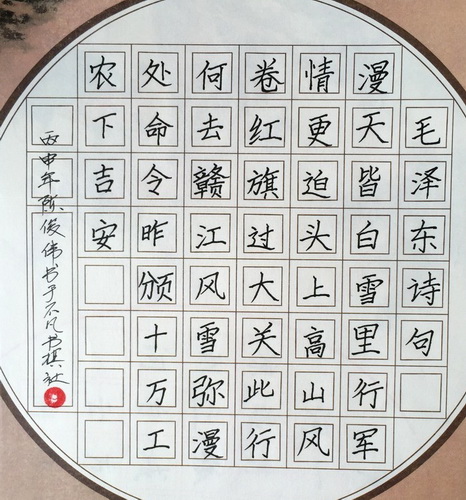 毛泽东诗句
漫天皆白雪里行军
情更迫头上高山风
卷红旗过大关此行
何去赣江风雪弥漫
处命令昨颁十万工
农下吉安
丙申年陈俊伟书于不凡书棋社